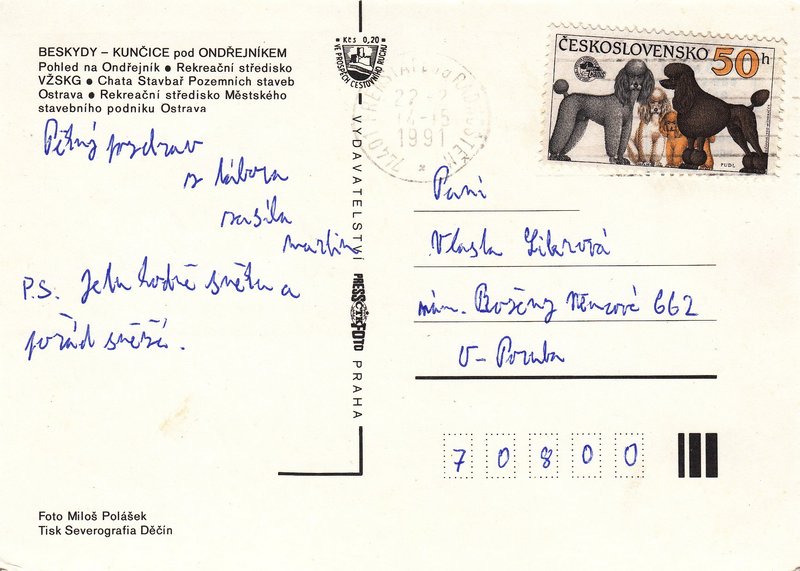 BESKYDY – KUNČICE pod ONDŘEJNÍKEM
Pohled na Ondřejník • Rekreační středisko
VŽSKG • Chata Stavbař Pozemních staveb
Ostrava • Rekreační středisko Městského
stavebního podniku Ostrava
Pěkný pozdrav
z tábora
zasílá
Martin
P.S. Je tu hodně sněhu a
pořád sněží.
Foto Miloš Polášek
Tisk Severografia Děčín
Kčs 0,20
VE PROSPĚCH CESTOVNÍHO RUCHU
VYDAVATELSTVÍ PRESSFOTO PRAHA
ČTK
22
14-15
1991
ČESKOSLOVENSKO 50h
PUDL
Paní
Vlasta
nám. Boženy Němcové 662
O-Poruba
70800